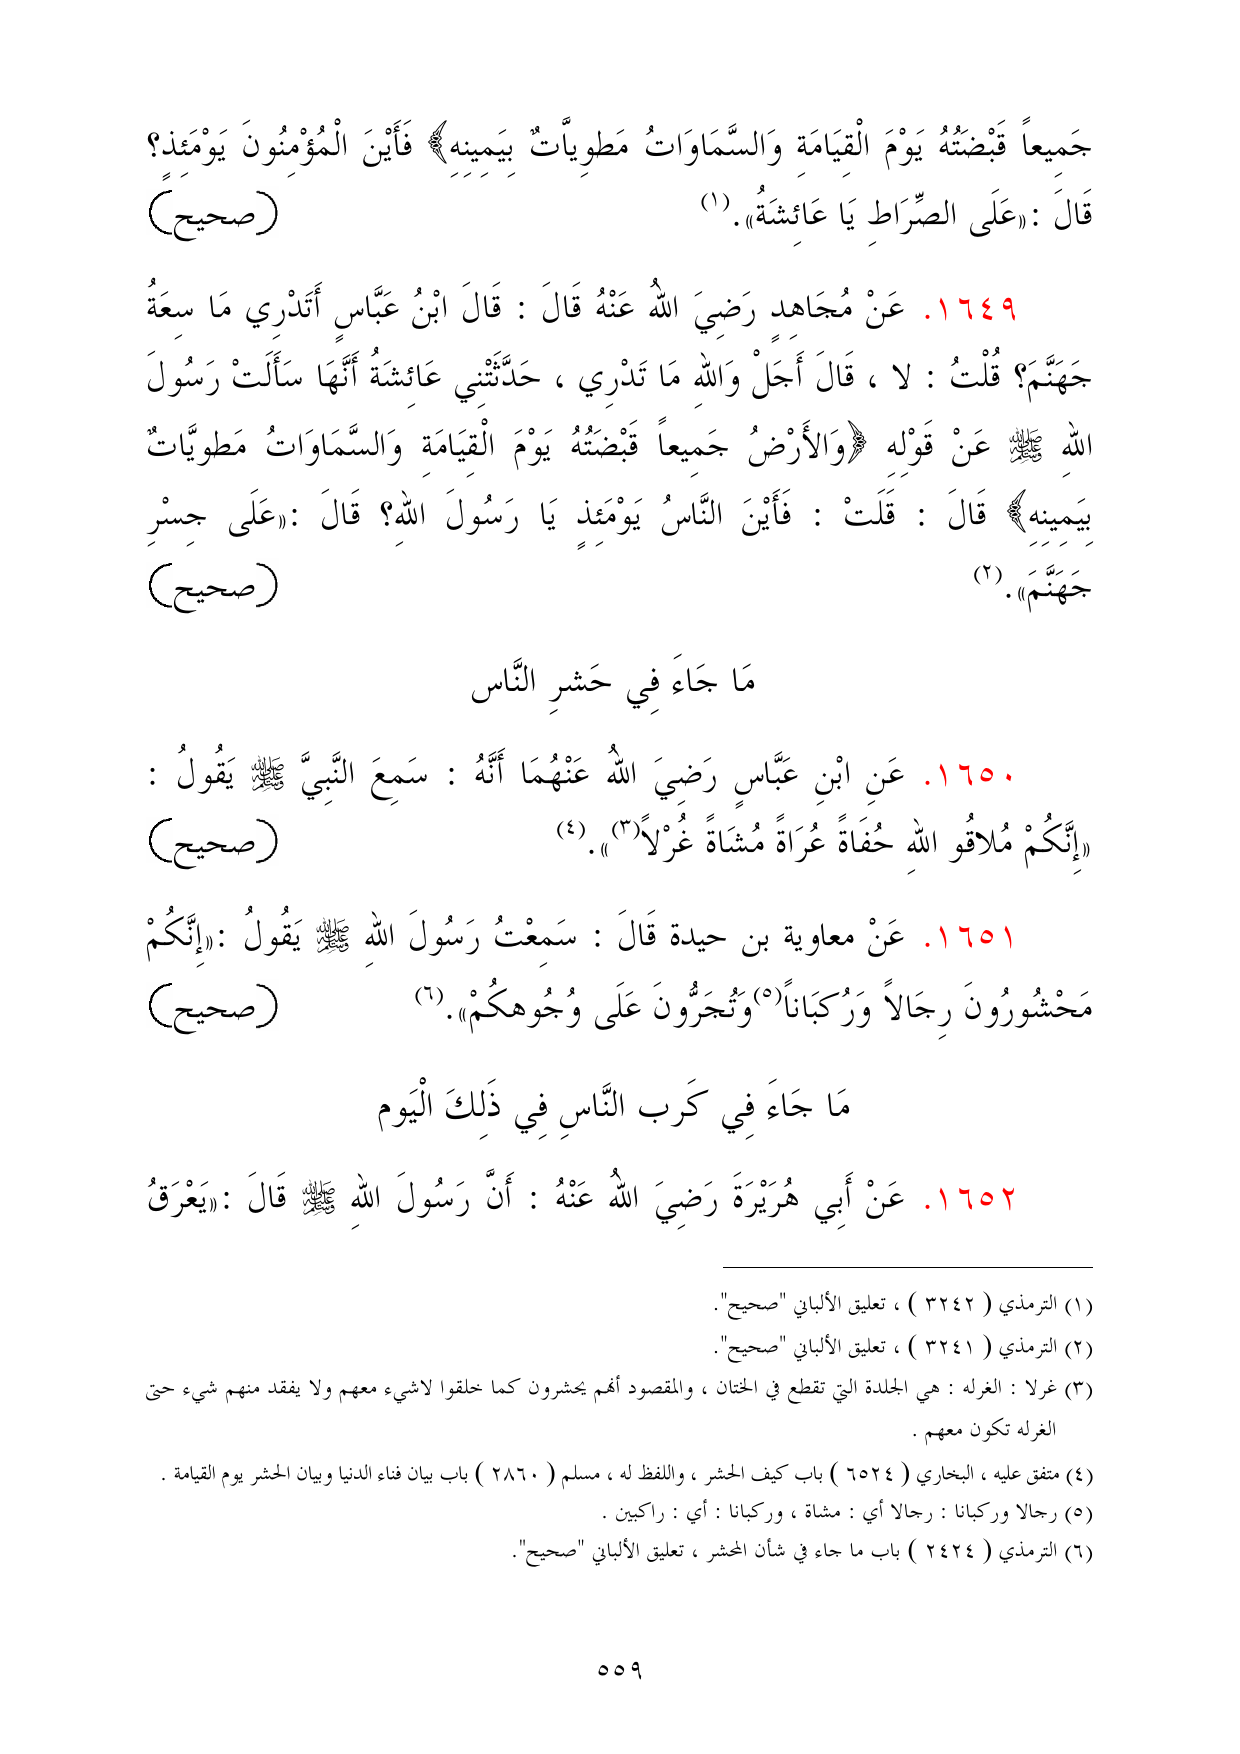 جَمِيعاً قَبْضَتُهُ يَوْمَ الْقِيَامَةِ وَالسَّمَاوَاتُ مَطوِيَّاتٌ بِيَمِينِهِ﴾ فَأَيْنَ الْمُؤْمِنُونَ يَوْمَئِذٍ؟
قَالَ :«عَلَى الصِّرَاطِ يَا عَائِشَةُ».(١) (صحيح)
١٦٤٩. عَنْ مُجَاهِدٍ رَضِيَ اللهُ عَنْهُ قَالَ : قَالَ ابْنُ عَبَّاسٍ أَتَدْرِي مَا سِعَةُ
جَهَنَّمَ؟ قُلْتُ : لا ، قَالَ أَجَلْ وَاللهِ مَا تَدْرِي ، حَدَّثَتْنِي عَائِشَةُ أَنَّهَا سَأَلَتْ رَسُولَ
اللهِ ﷺ عَنْ قَوْلِهِ ﴿وَالأَرْضُ جَمِيعاً قَبْضَتُهُ يَوْمَ الْقِيَامَةِ وَالسَّمَاوَاتُ مَطوِيَّاتٌ
بِيَمِينِهِ﴾ قَالَ : قَلَتْ : فَأَيْنَ النَّاسُ يَوْمَئِذٍ يَا رَسُولَ اللهِ؟ قَالَ :«عَلَى جِسْرِ
جَهَنَّمَ».(٢) (صحيح)
مَا جَاءَ فِي حَشرِ النَّاس
١٦٥٠. عَنِ ابْنِ عَبَّاسٍ رَضِيَ اللهُ عَنْهُمَا أَنَّهُ : سَمِعَ النَّبِيَّ ﷺ يَقُولُ :
«إِنَّكُمْ مُلاقُو اللهِ حُفَاةً عُرَاةً مُشَاةً غُرْلاً(٣)».(٤) (صحيح)
١٦٥١. عَنْ معاوية بن حيدة قَالَ : سَمِعْتُ رَسُولَ اللهِ ﷺ يَقُولُ :«إِنَّكُمْ
مَحْشُورُونَ رِجَالاً وَرُكبَاناً(٥)وَتُجَرُّونَ عَلَى وُجُوهكُمْ».(٦) (صحيح)
مَا جَاءَ فِي كَرب النَّاسِ فِي ذَلِكَ الْيَوم
١٦٥٢. عَنْ أَبِي هُرَيْرَةَ رَضِيَ اللهُ عَنْهُ : أَنَّ رَسُولَ اللهِ ﷺ قَالَ :«يَعْرَقُ
(١) الترمذي ( ٣٢٤٢ ) ، تعليق الألباني "صحيح".
(٢) الترمذي ( ٣٢٤١ ) ، تعليق الألباني "صحيح".
(٣) غرلا : الغرله : هي الجلدة التي تقطع في الختان ، والمقصود أنهم يحشرون كما خلقوا لاشيء معهم ولا يفقد منهم شيء حتى
الغرله تكون معهم .
(٤) متفق عليه ، البخاري ( ٦٥٢٤ ) باب كيف الحشر ، واللفظ له ، مسلم ( ٢٨٦٠ ) باب بيان فناء الدنيا وبيان الحشر يوم القيامة .
(٥) رجالا وركبانا : رجالا أي : مشاة ، وركبانا : أي : راكبين .
(٦) الترمذي ( ٢٤٢٤ ) باب ما جاء في شأن المحشر ، تعليق الألباني "صحيح".
٥٥٩